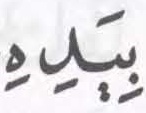 بِيَدِهِ